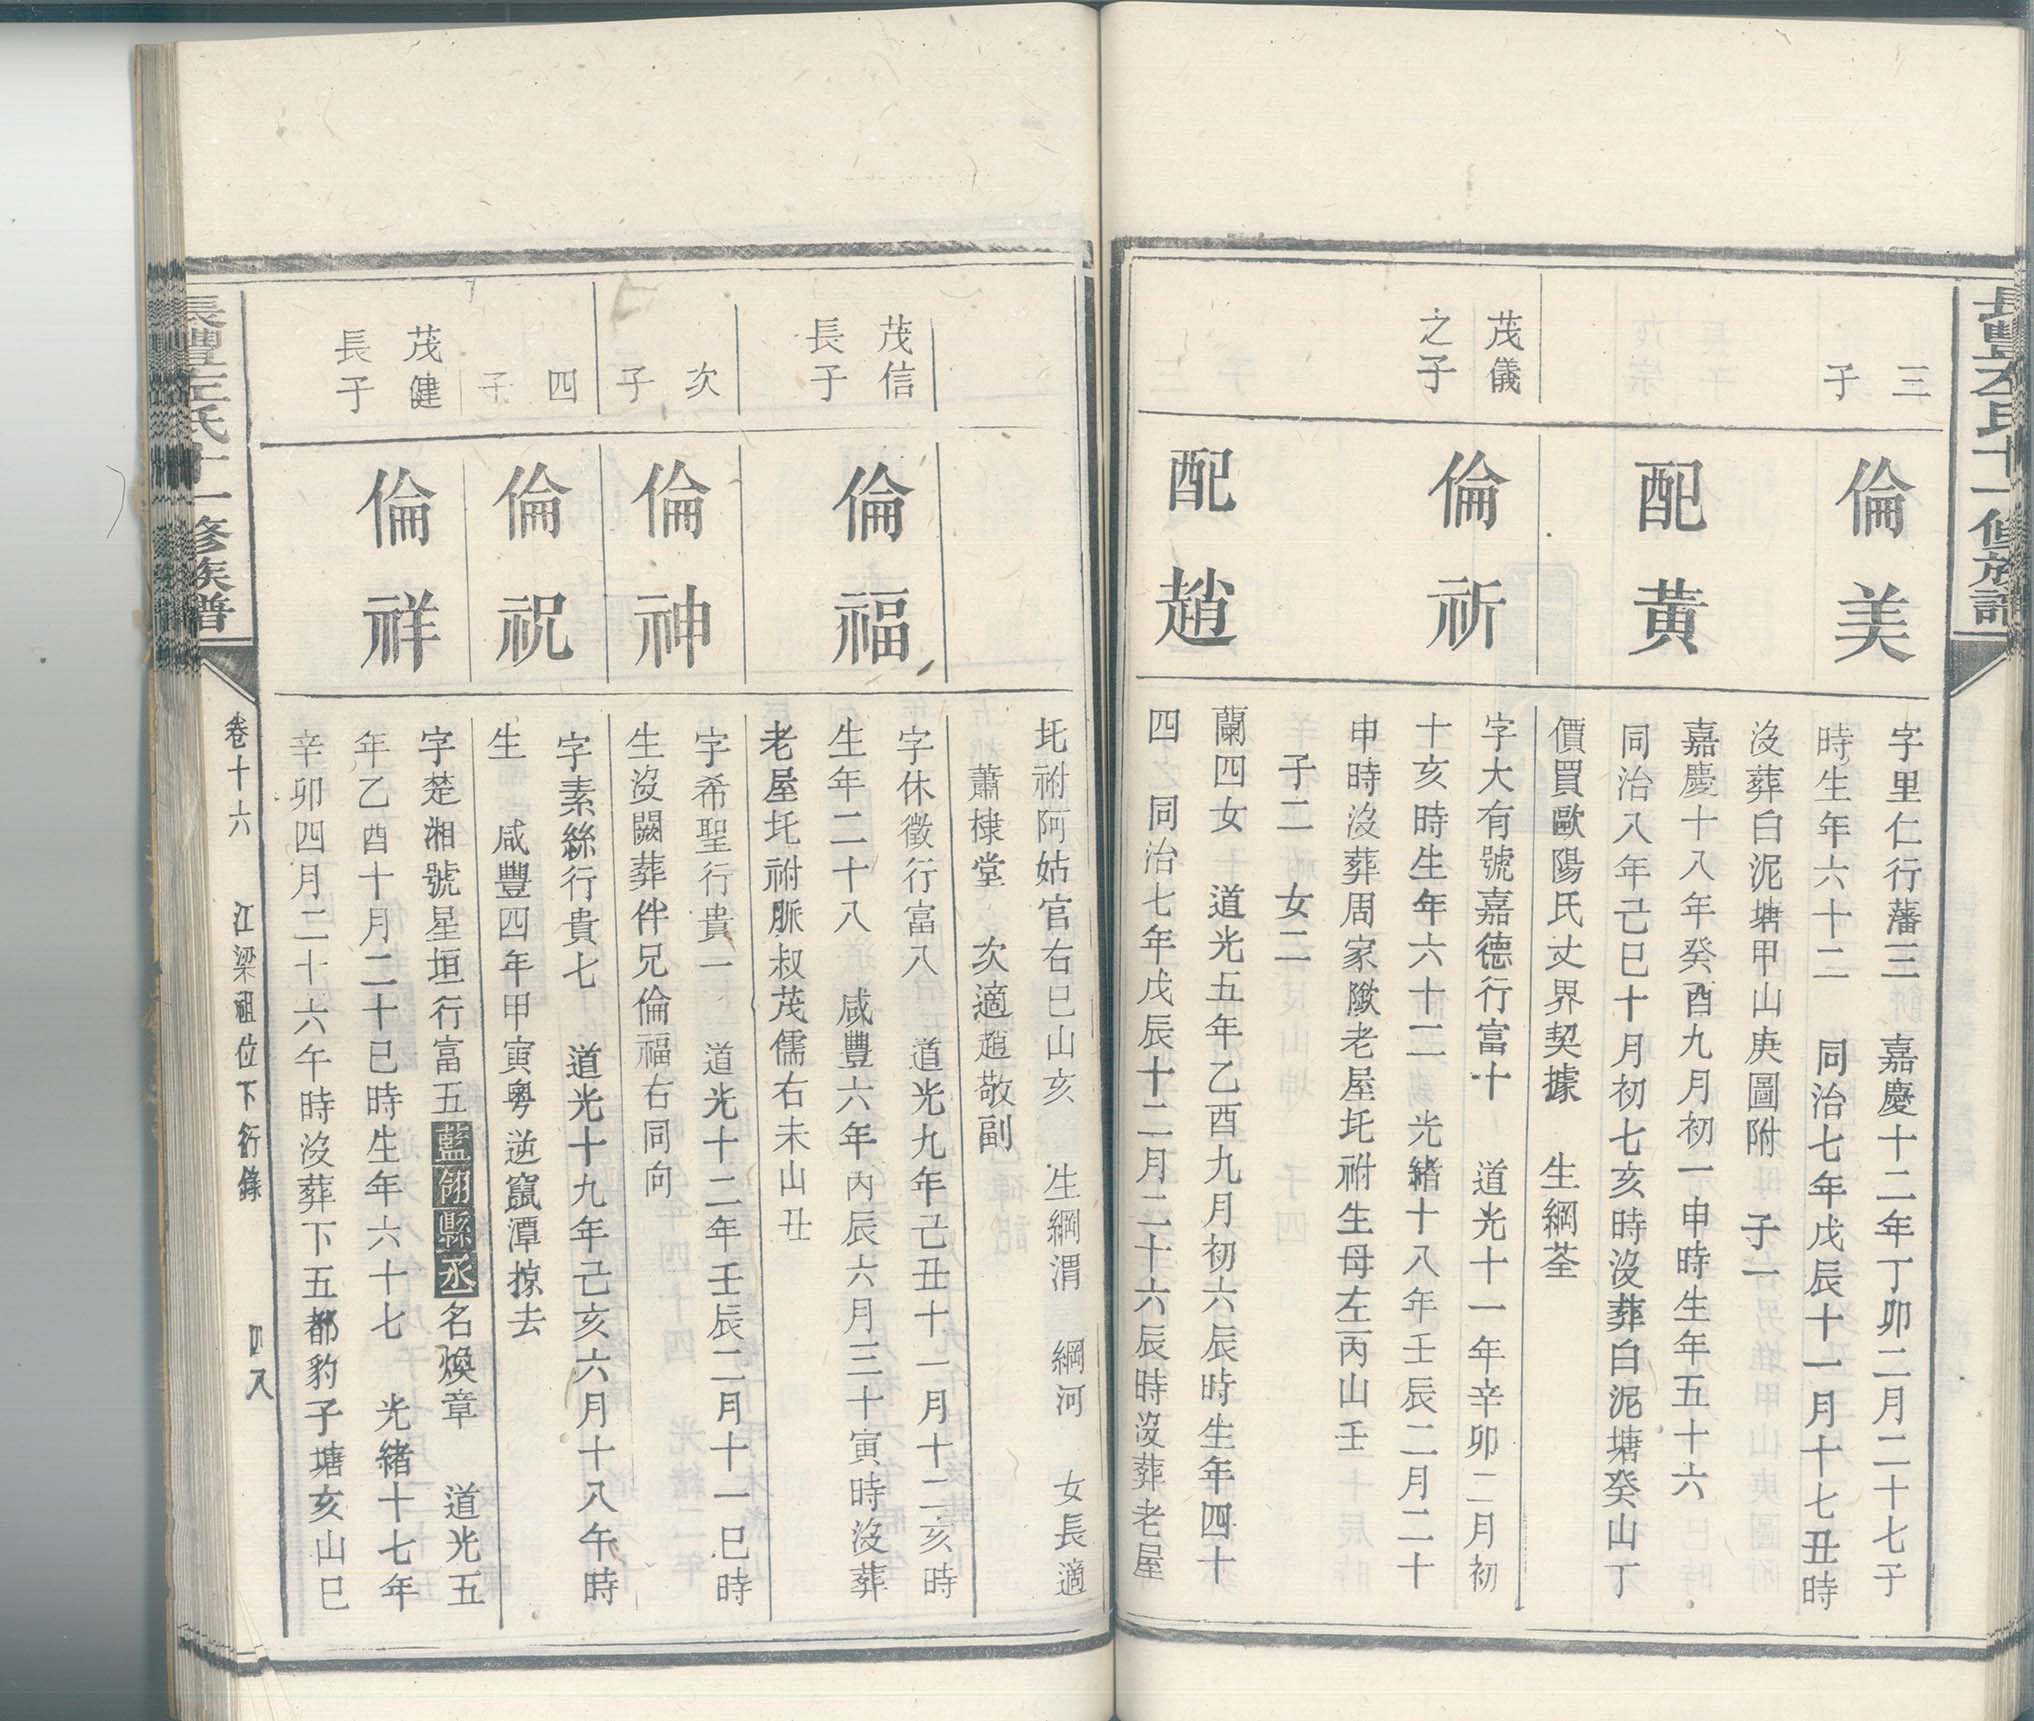 長豐左氏十一修族譜
三
子
倫美
字里仁行藩三　嘉慶十二年丁卯二月二十七子
時生年六十二　同治七年戊辰十一月十七丑時
沒葬白泥塘甲山庚圖附　子一
配黃
嘉慶十八年癸酉九月初一申時生年五十六
同治八年己巳十月初七亥時沒葬白泥塘癸山丁
價買歐陽氏丈界契據　生綱荃
茂儀
之子
倫祈
字大有號嘉德行富十　道光十一年辛卯二月初
十亥時生年六十二　光緒十八年壬辰二月二十
申時沒葬周家隞老屋圫祔生母左丙山壬
子二　女二
配趙
蘭四女　道光五年乙酉九月初六辰時生年四十
四　同治七年戊辰十二月二十六辰時沒葬老屋
圫祔阿姑官右巳山亥　生綱渭　綱河　女長適
蕭棣堂　次適趙敬副
茂信
長子
倫福
字休徵行富八　道光九年己丑十一月十二亥時
生年二十八　咸豐六年丙辰六月三十寅時沒葬
老屋圫祔脈叔茂儒右未山丑
次
子
倫神
字希聖行貴一　道光十二年壬辰二月十一巳時
生沒闕葬伴兄倫福右同向
四
子
倫祝
字素絲行貴七　道光十九年己亥六月十八午時
生　咸豐四年甲寅粵逆竄潭掠去
茂健
長子
倫祥
字楚湘號星垣行富五藍翎縣丞名煥章　道光五
年乙酉十月二十巳時生年六十七　光緒十七年
辛卯四月二十六午時沒葬下五都豹子塘亥山巳
長豐左氏十一修族譜
卷十六　江梁祖位下行錄　四八